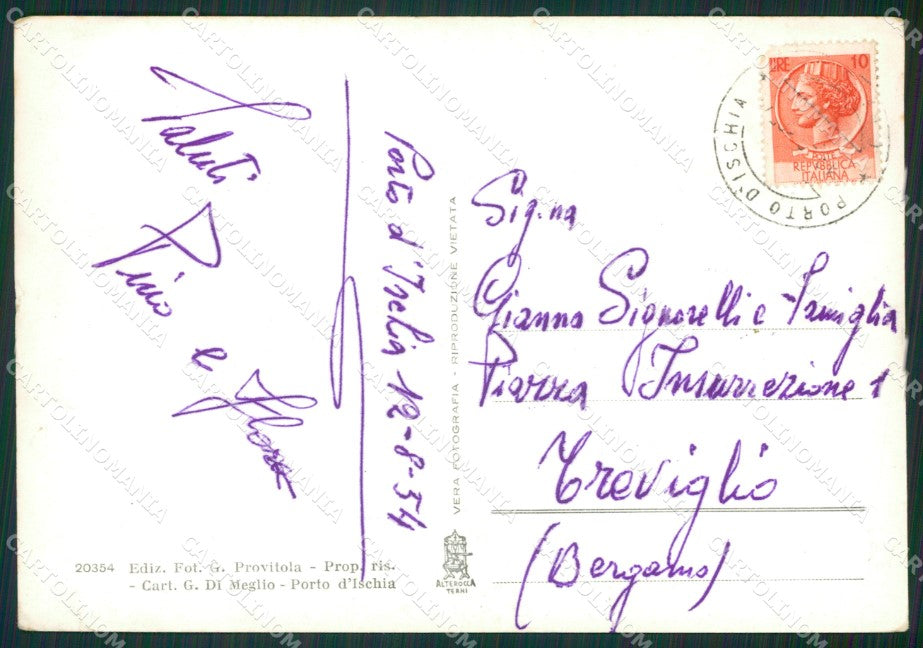 Saluti
Pino
e Flora
Porto d'Ischia 12-8-54
VERA FOTOGRAFIA - RIPRODUZIONE VIETATA
LIRE 10
POSTE
REPVBBLICA
ITALIANA
PORTO D'ISCHIA
Sig.na
Gianna Signorelli e Famiglia
Piazza Insurrezione 1
Treviglio
(Bergamo)
20354 Ediz. Fot. G. Provitola - Prop. ris.
- Cart. G. Di Meglio - Porto d'Ischia
ALTEROCCA
TERNI
CARTOLINOMANIA